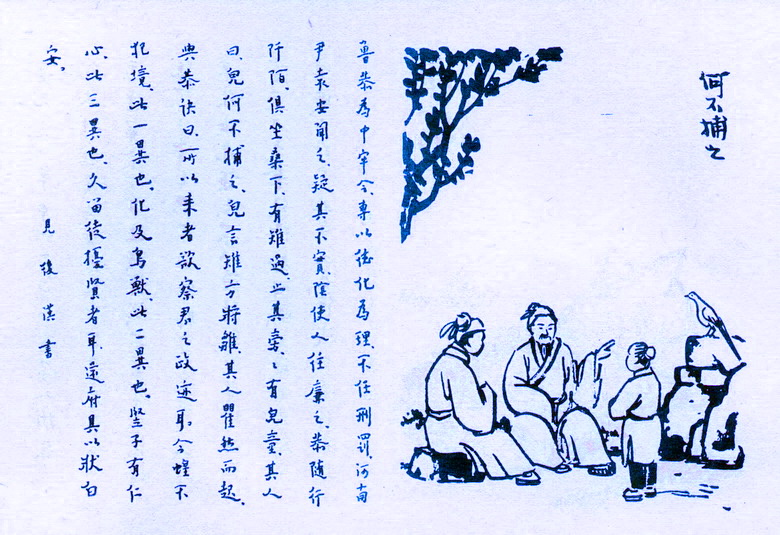 何不捕之
魯恭為中牟令、專以德化為理、不任刑罰、河南
尹袁安聞之、疑其不實、陰使人往廉之、恭隨行
阡陌、俱坐桑下、有雉過、止其旁、〻有兒童、其人
曰、兒何不捕之、兒言雉方將雛、其人瞿然而起、
與恭訣曰、所以來者欲察君之政迹耳、今蝗不
犯境、此一異也、化及鳥獸、此二異也、豎子有仁
心、此三異也、久留徒擾賢者耳、還府具以狀白
安。
見後漢書